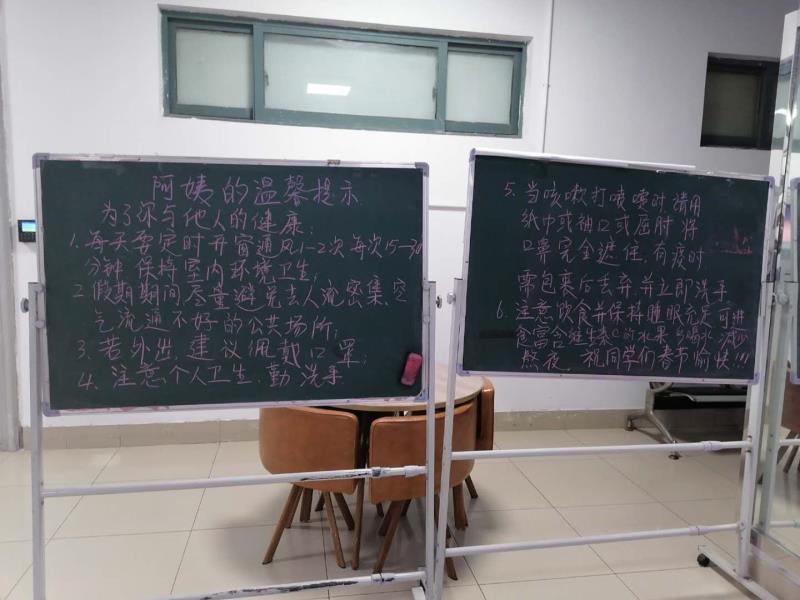 阿姨的温馨提示
为了你与他人的健康:
1. 每天要定时开窗通风1-2次每次15-30
分钟,保持室内环境卫生;
2. 假期期间尽量避免去人流密集,空
气流通不好的公共场所;
3. 若外出,建议佩戴口罩;
4. 注意个人卫生,勤洗手
5. 当咳嗽打喷嚏时请用
纸巾或袖口或屈肘将
口鼻完全遮住,有痰时
需包裹后丢弃并立即洗手
6. 注意饮食并保持睡眠充足,可进
食富含维生素C的水果,多喝水,减少
熬夜 祝同学们春节愉快!!!